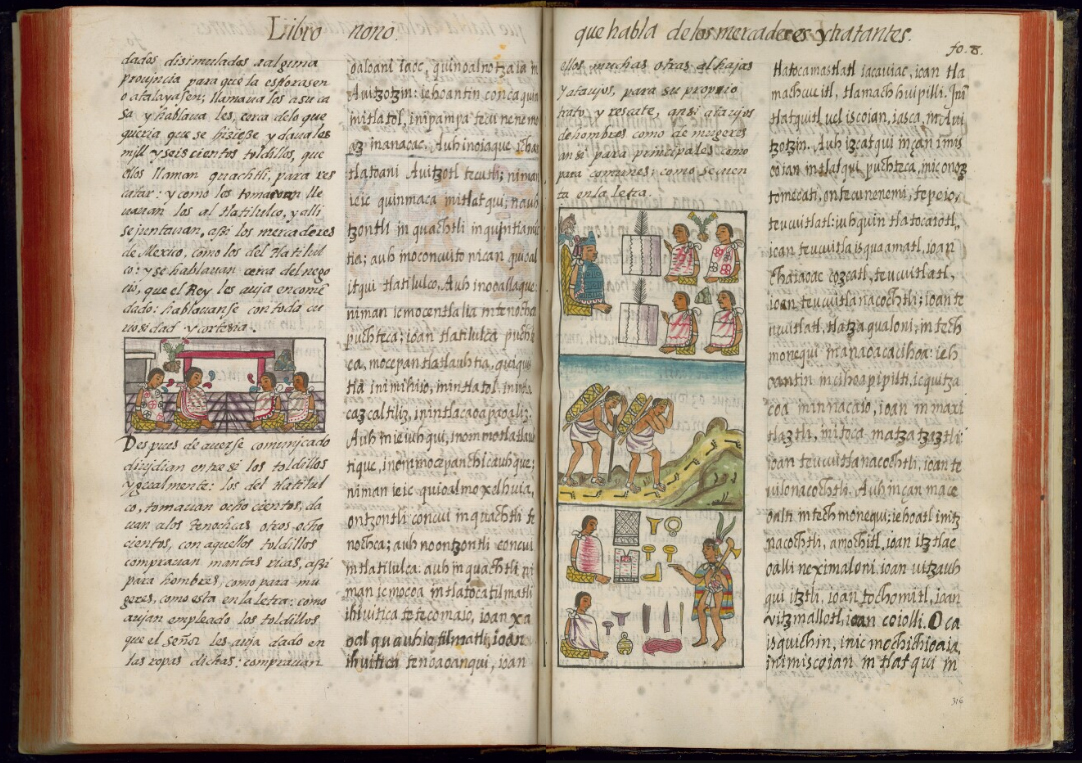 Libro nono.
dados, disimulados a alguna
prouincia para que la esplorasen
o atalayasen; llamaua los a su ca
sa y hablaua les, cerca delo que
queria que se hiziese y dauales
mill y seis cientos toldillos, que
ellos llaman quachtli, para res
catar: y como los tomauan lle
uauan los al tlatilulco, y alli
se juntauan, assi los mercaderes
de Mexico, como los del tlatilul
co: y se hablauan cerca del nego
cio, que el Rey les auja encomē
dado: hablauanse con toda cu
riosidad y cortesia.
Despues de auerse comunicado
diuidian entre si los toldillos
ygualmente: los del tlatilul
co, tomauan ocho cientos, da
uan a los tenochcas otros ocho
cientos, con aquellos toldillos
comprauan mantas ricas, assi
para hombres, como para mu
geres, como esta en la letra: como
aujan empleado los toldillos
que el señor les auja dado en
las ropas dichas: comprauan
Auitzotzin: iehoantin conca
mitlatol, inipampa tecunenene
Auh inoiaque
tlatoani Auitzotl tecutli; niman
ieic quinmaca mitlatqui; nauh
tzontli in quachtli in quintlama
tia; auh moconcuito nican
itqui tlatilulco. Auh inooallaque
niman iemocentlalia intenochca
puchteca; ioan tlatilulca puch
ca, mocepantlatlauhtia,
tla inimihiio, mintlatol
Auh in ie iuhqui,
niman ieic
ontzontli concui in quachtli te
nochca; auh noontzontli concui
intlatilulca: auh in quachtli ni
man iemocoa in tlatocatilmatli
ihiuitica tetecomaio, ioan xa
oal quauhio tilmatli, ioan
ihuitica tenoaoanqui, ioan
que habla delos mercaderes y tratantes.
fo. 8.
ellos muchas otras alhajas
y atauios, para su proprio
trato y rescate, ansi atauios
de hombres como de mugeres
ansi para principales como
para comunes: como se cuen
ta en la letra.
tlatocamaxtlatl iacauiac, ioan tla
machcueitl, tlamachhuipilli. Inin
tlatquitl uel iscoian, iasca, in Aui
tzotzin. Auh izcatqui in çan innis
coian intlatqui, puchteca, in ic onoz
tomecati, ontecunenemi, tepeiotl
teucuitlatl: iuhquin tlatocaiotl,
ioan teucuitla isquaamatl, ioan
chaiaoac cozcatl, teucuitlatl,
ioan teucuitlanacochtli; ioan te
cuitlatl. tlatzaqualoni; intech
monequi in anaoaca cihoa: ieh
oantin in cihoapipilti ic quitza
coa minnacaio, ioan in maxi
tlaztli, mitoca matzatzaztli
ioan teucuitlanacochtli, ioan te
uilonacochtli. Auh in çan mace
oalti intech monequi; iehoatl initz
nacochtli, amochitl, ioan itztlae
oalli neximaloni, ioan uitzauh
qui itztli, ioan tochomitl, ioan
vitzmallotl, ioan coiolli. Oca
isquichin, inic mochichioaia,
inimiscoian intlatqui in
314